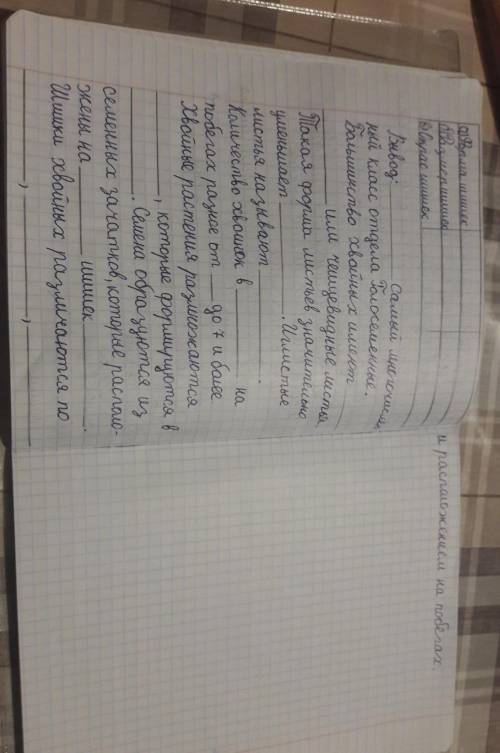 а) Форма шишек
б) Размер шишек
в) Окрас шишек
Вывод: ________ Самый многочислен-
ный класс отдела Голосеменные.
Большинство хвойных имеют
________ или чешуевидные листья
Такая форма листьев значительно
уменьшает ________. Иглистые
листья называют ________.
Количество хвоинок в ________ на
побегах разное от ___ до 7 и более
Хвойные растения размножаются
________, которые формируются в
________. Семена образуются из
семенных зачатков, которые располо-
жены на ________ шишек ________.
Шишки хвойных различаются по
________, ________, ________
и расположением на побегах.